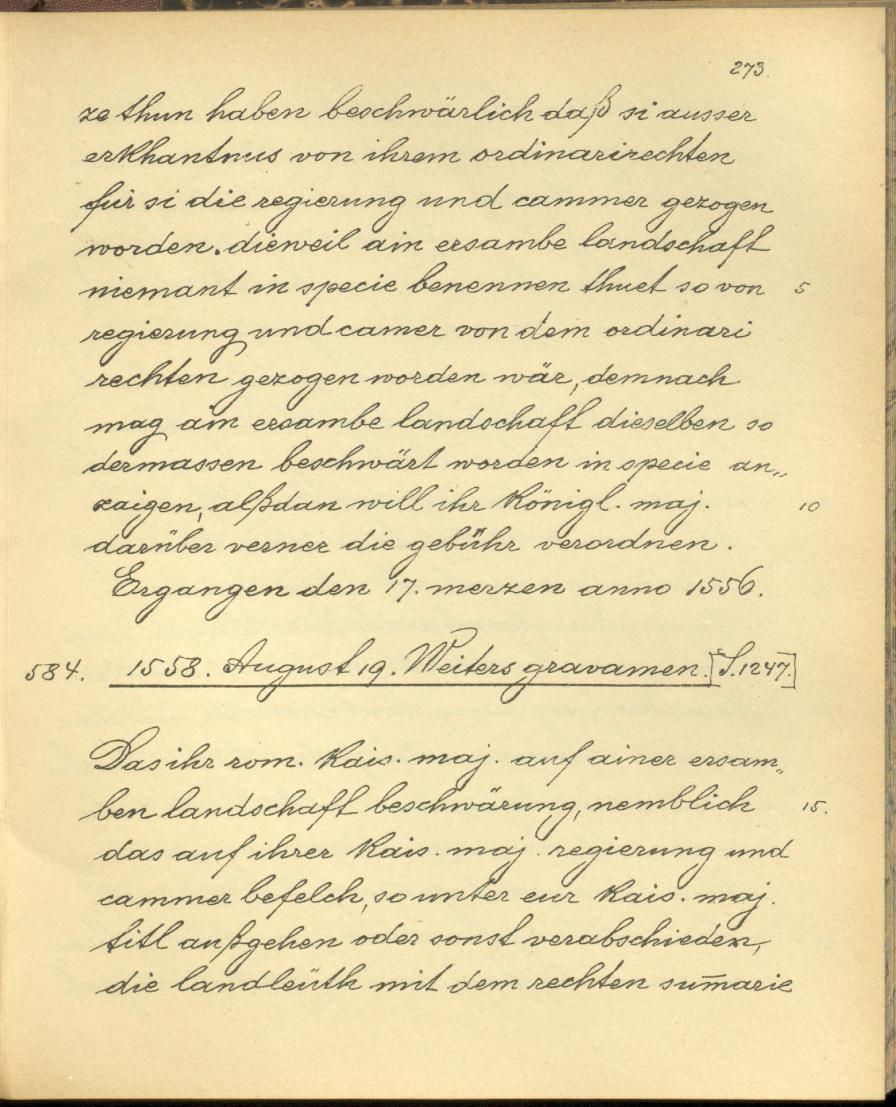 273.
ze thun haben beschwärlich daß si ausser
erkhantnus von ihrem ordinarirechten
für si die regierung und cammer gezogen
worden. dieweil ain ersambe landschaft
niemant in specie benennen thuet so von 5
regierung und camer von dem ordinari
rechten gezogen worden wär, demnach
mag ain ersambe landschaft dieselben so
dermassen beschwärt worden in specie an„
zaigen, alßdan will ihr königl. maj. 10
darüber verner die gebühr verordnen.
Ergangen den 17. merzen anno 1556.
584. 1558. August 19. Weiters gravamen. [S. 1247.]
Das ihr rom. kais. maj. auf ainer ersam„
ben landschaft beschwärung, nemblich 15.
das auf ihrer kais. maj. regierung und
cammer befelch, so unter eur kais. maj.
titl außgehen oder sonst verabschieden,
die landleüth mit dem rechten sum̅arie